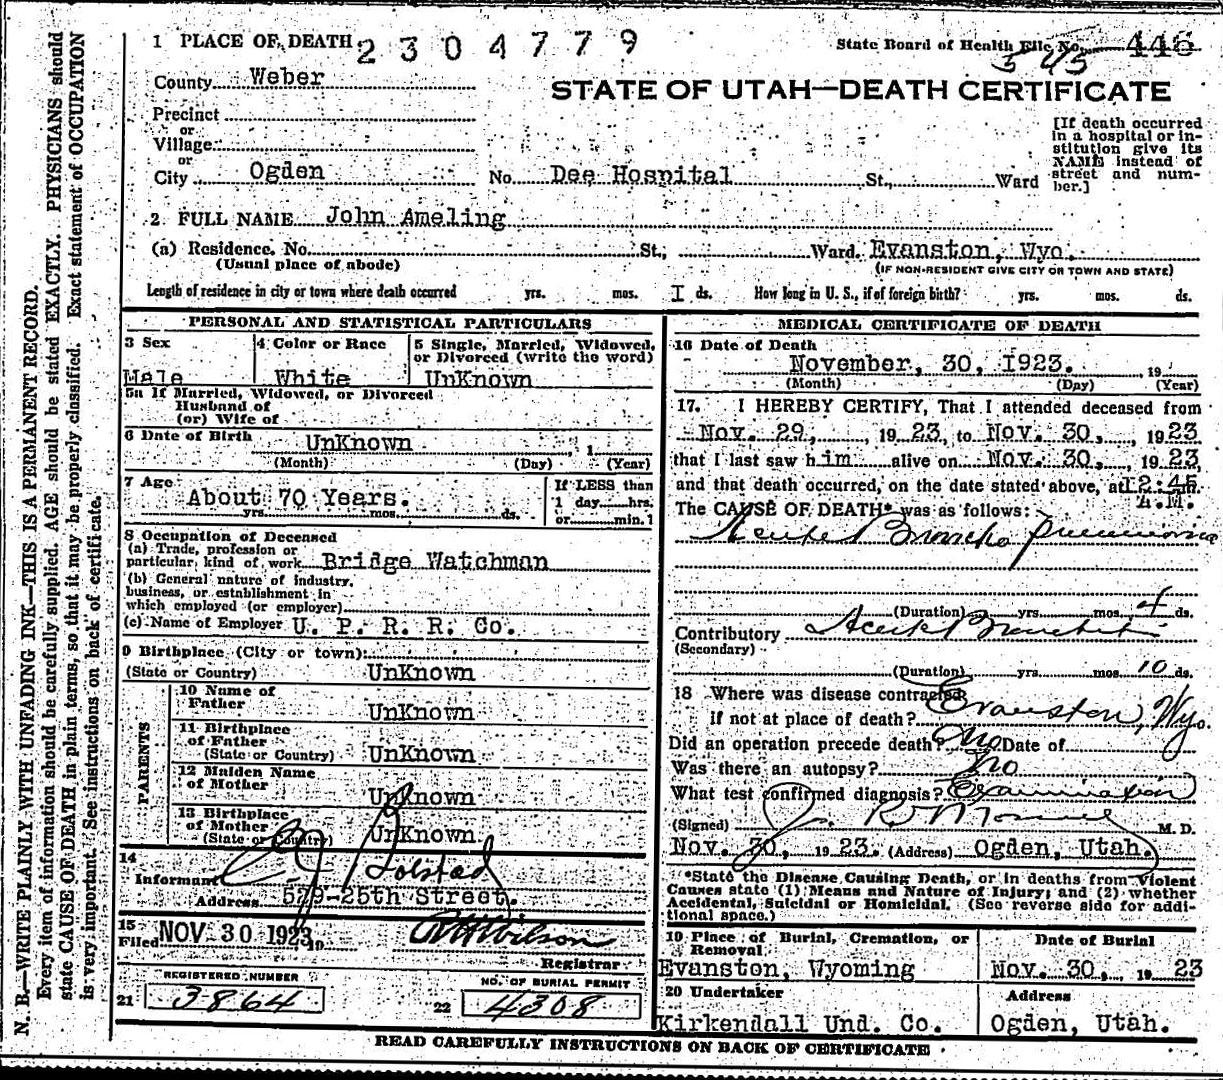 N. B.—WRITE PLAINLY WITH UNFADING INK—THIS IS A PERMANENT RECORD.
Every item of information should be carefully supplied. AGE should be stated EXACTLY. PHYSICIANS should
state CAUSE OF DEATH in plain terms, so that it may be properly classified. Exact statement of OCCUPATION
is very important. See instructions on back of certificate.
1 PLACE OF DEATH
2304779
State Board of Health File No. 446
345
County Weber
STATE OF UTAH—DEATH CERTIFICATE
Precinct
or
Village
or
City Ogden No. Dee Hospital St., Ward
[If death occurred
in a hospital or in-
stitution give its
NAME instead of
street and num-
ber.]
2 FULL NAME John Ameling
(a) Residence. No. St., Ward. Evanston, Wyo.
(Usual place of abode) (IF NON-RESIDENT GIVE CITY OR TOWN AND STATE)
Length of residence in city or town where death occurred yrs. mos. I ds. How long in U. S., if of foreign birth? yrs. mos. ds.
PERSONAL AND STATISTICAL PARTICULARS
3 Sex
Male
4 Color or Race
White
5 Single, Married, Widowed,
or Divorced (write the word)
UnKnown
5a If Married, Widowed, or Divorced
Husband of
(or) Wife of
6 Date of Birth UnKnown , 1
(Month) (Day) (Year)
7 Age
About 70 Years.
yrs. mos. ds.
If LESS than
1 day hrs.
or min.?
8 Occupation of Deceased
(a) Trade, profession or
particular, kind of work Bridge Watchman
(b) General nature of industry,
business, or establishment in
which employed (or employer)
(c) Name of Employer U. P. R. R. Co.
9 Birthplace (City or town)
(State or Country) UnKnown
PARENTS
10 Name of
Father UnKnown
11 Birthplace
of Father
(State or Country) UnKnown
12 Maiden Name
of Mother UnKnown
13 Birthplace
of Mother
(State or Country) UnKnown
14
Informant Tolstad
Address 529-25th Street.
15
Filed NOV 30 1923 19
Wilson
Registrar
REGISTERED NUMBER
21 3864
NO. OF BURIAL PERMIT
22 4308
MEDICAL CERTIFICATE OF DEATH
16 Date of Death
November, 30, I923. , 19
(Month) (Day) (Year)
17. I HEREBY CERTIFY, That I attended deceased from
Nov. 29, , 19 23, to Nov. 30, , 1923
that I last saw him alive on Nov. 30, , 19 23,
and that death occurred, on the date stated above, at I2:45 m.
A.M.
The CAUSE OF DEATH* was as follows:
Acute Broncho pneumonia
(Duration) yrs. mos. 4 ds.
Contributory Acute Bronchitis
(Secondary)
(Duration) yrs. mos. 10 ds.
18 Where was disease contracted
if not at place of death? Evanston, Wyo.
Did an operation precede death? No Date of
Was there an autopsy? No
What test confirmed diagnosis? Examination
(Signed) M. D.
Nov. 30, 1923. (Address) Ogden, Utah.
*State the Disease Causing Death, or in deaths from Violent
Causes state (1) Means and Nature of Injury; and (2) whether
Accidental, Suicidal or Homicidal. (See reverse side for addi-
tional space.)
19 Place of Burial, Cremation, or
Removal
Evanston, Wyoming
Date of Burial
Nov. 30, , 19 23
20 Undertaker
Kirkendall Und. Co.
Address
Ogden, Utah.
READ CAREFULLY INSTRUCTIONS ON BACK OF CERTIFICATE